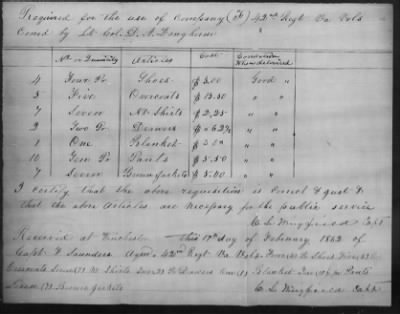 Required for the use of Company (F) 42nd Regt Va Vols
Comd by Lt Col. D. A. Langhorne
No or Quantity Articles Cost Condition When delivered
4 Four Pr Shoes $ 3.00 Good "
5 Five Overcoats $ " "
7 Seven Shirts $ 2.25 " "
2 Two Pr Drawers $ " "
1 One Blanket $ " "
10 Ten Pr Pants $ 5.50 " "
7 Seven Jackets $ 5.00 " "
I certify that the above requisition is correct & just &
that the above Articles are necessary for the public service
C. L. Wingfield Capt
Received at Winchester this 17th day of February 1862 of
Capt F Saunders 42nd Regt Va Vols Four (4) Pr Shoes Five (5)
Overcoats Seven (7) Shirts Two (2) Pr Drawers One (1) Blanket Ten (10) pr Pants
Seven (7) Jackets C. L. Wingfield Capt